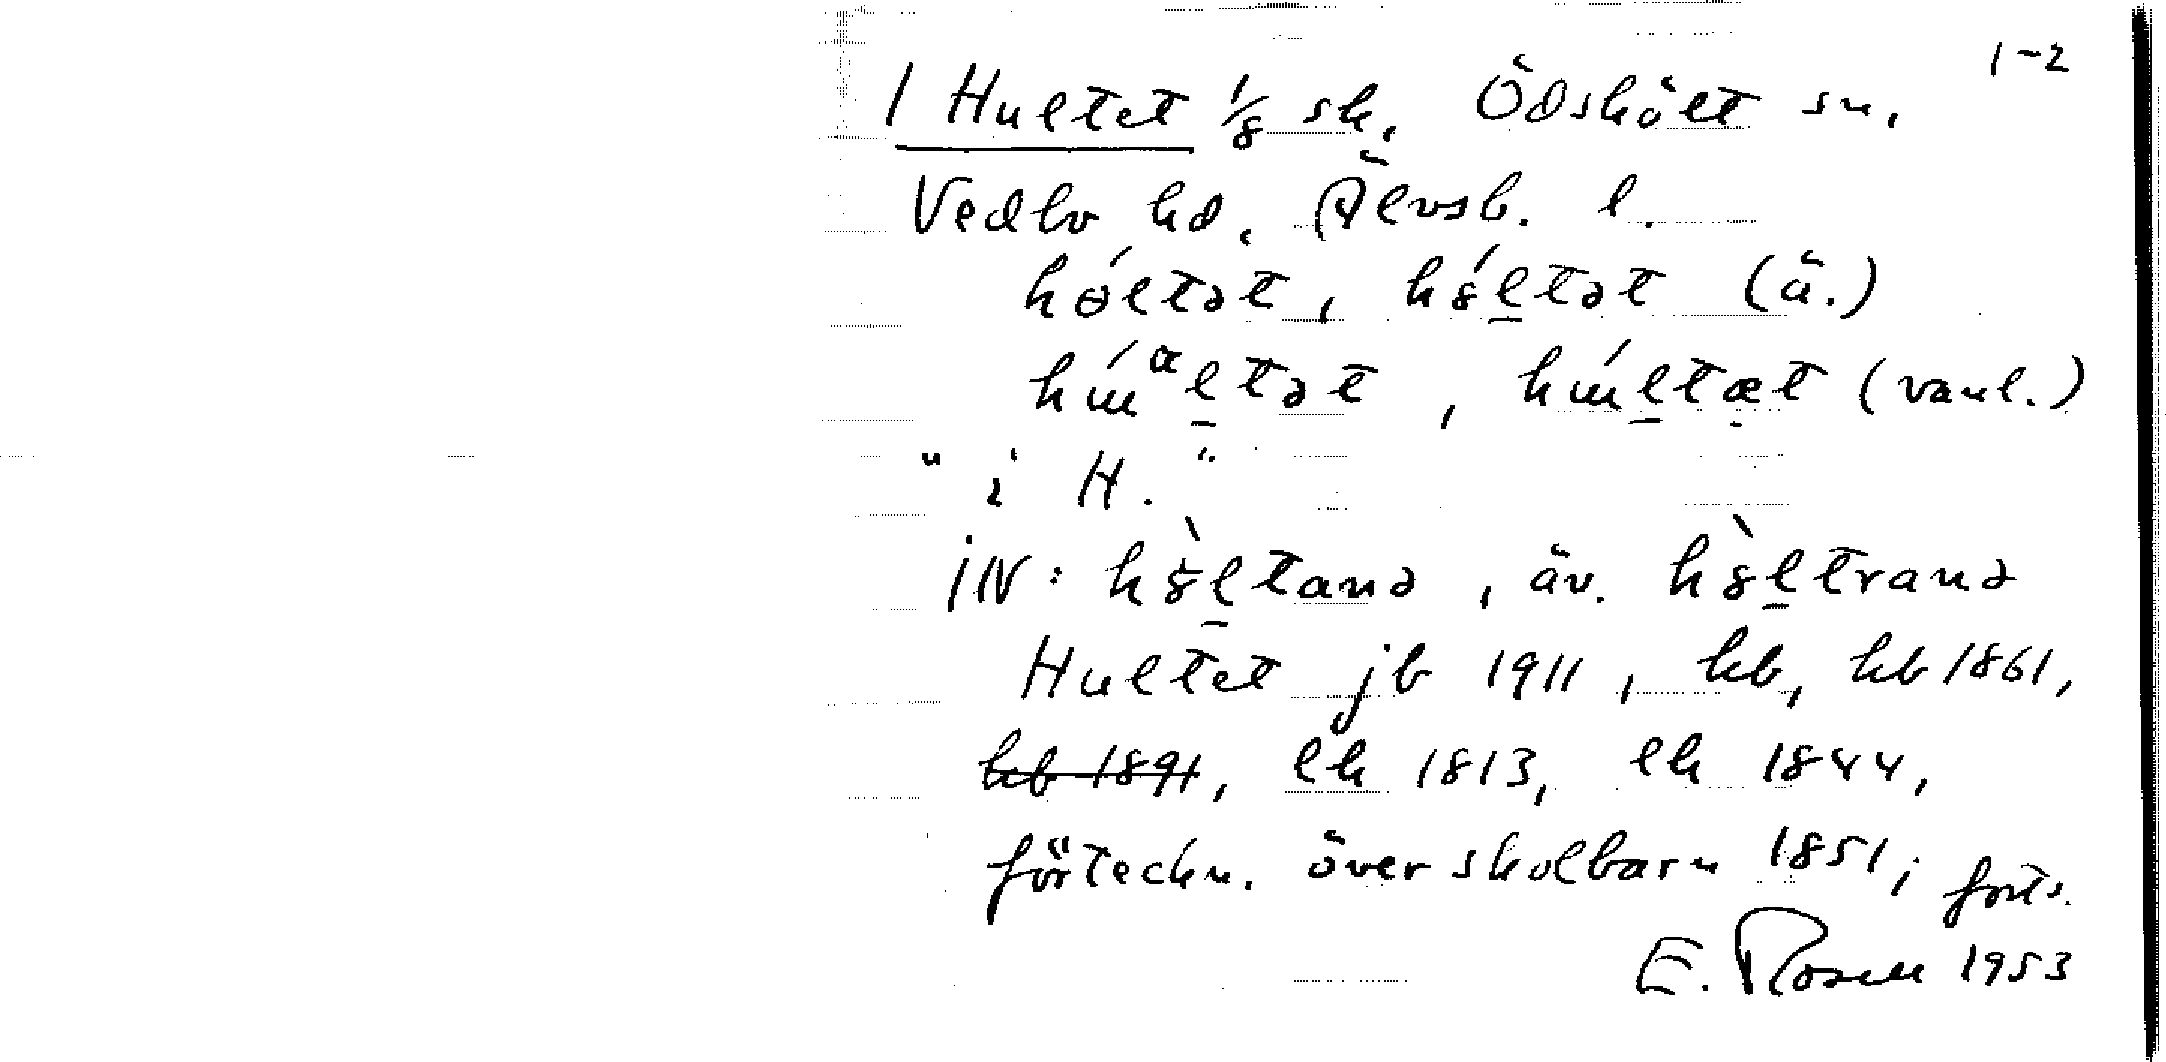 1-2
1 Hultet 1/8 sk. Ödskölt sn.
Vedbo hd. Älvsb. l.
hóltət, hɞ́l̠tət (ä.)
hɯ́ᵅl̠tət, hɯ́l̠tæt (vanl.)
"i H."
IN: hɞ̀l̠tanə, äv. hɞ̀l̠tranə
Hultet jb 1911, kb, kb 1861,
kb 1891, lk 1813, lk 1844,
förteckn. över skolbarn 1851; forts.
E. Rosell 1953